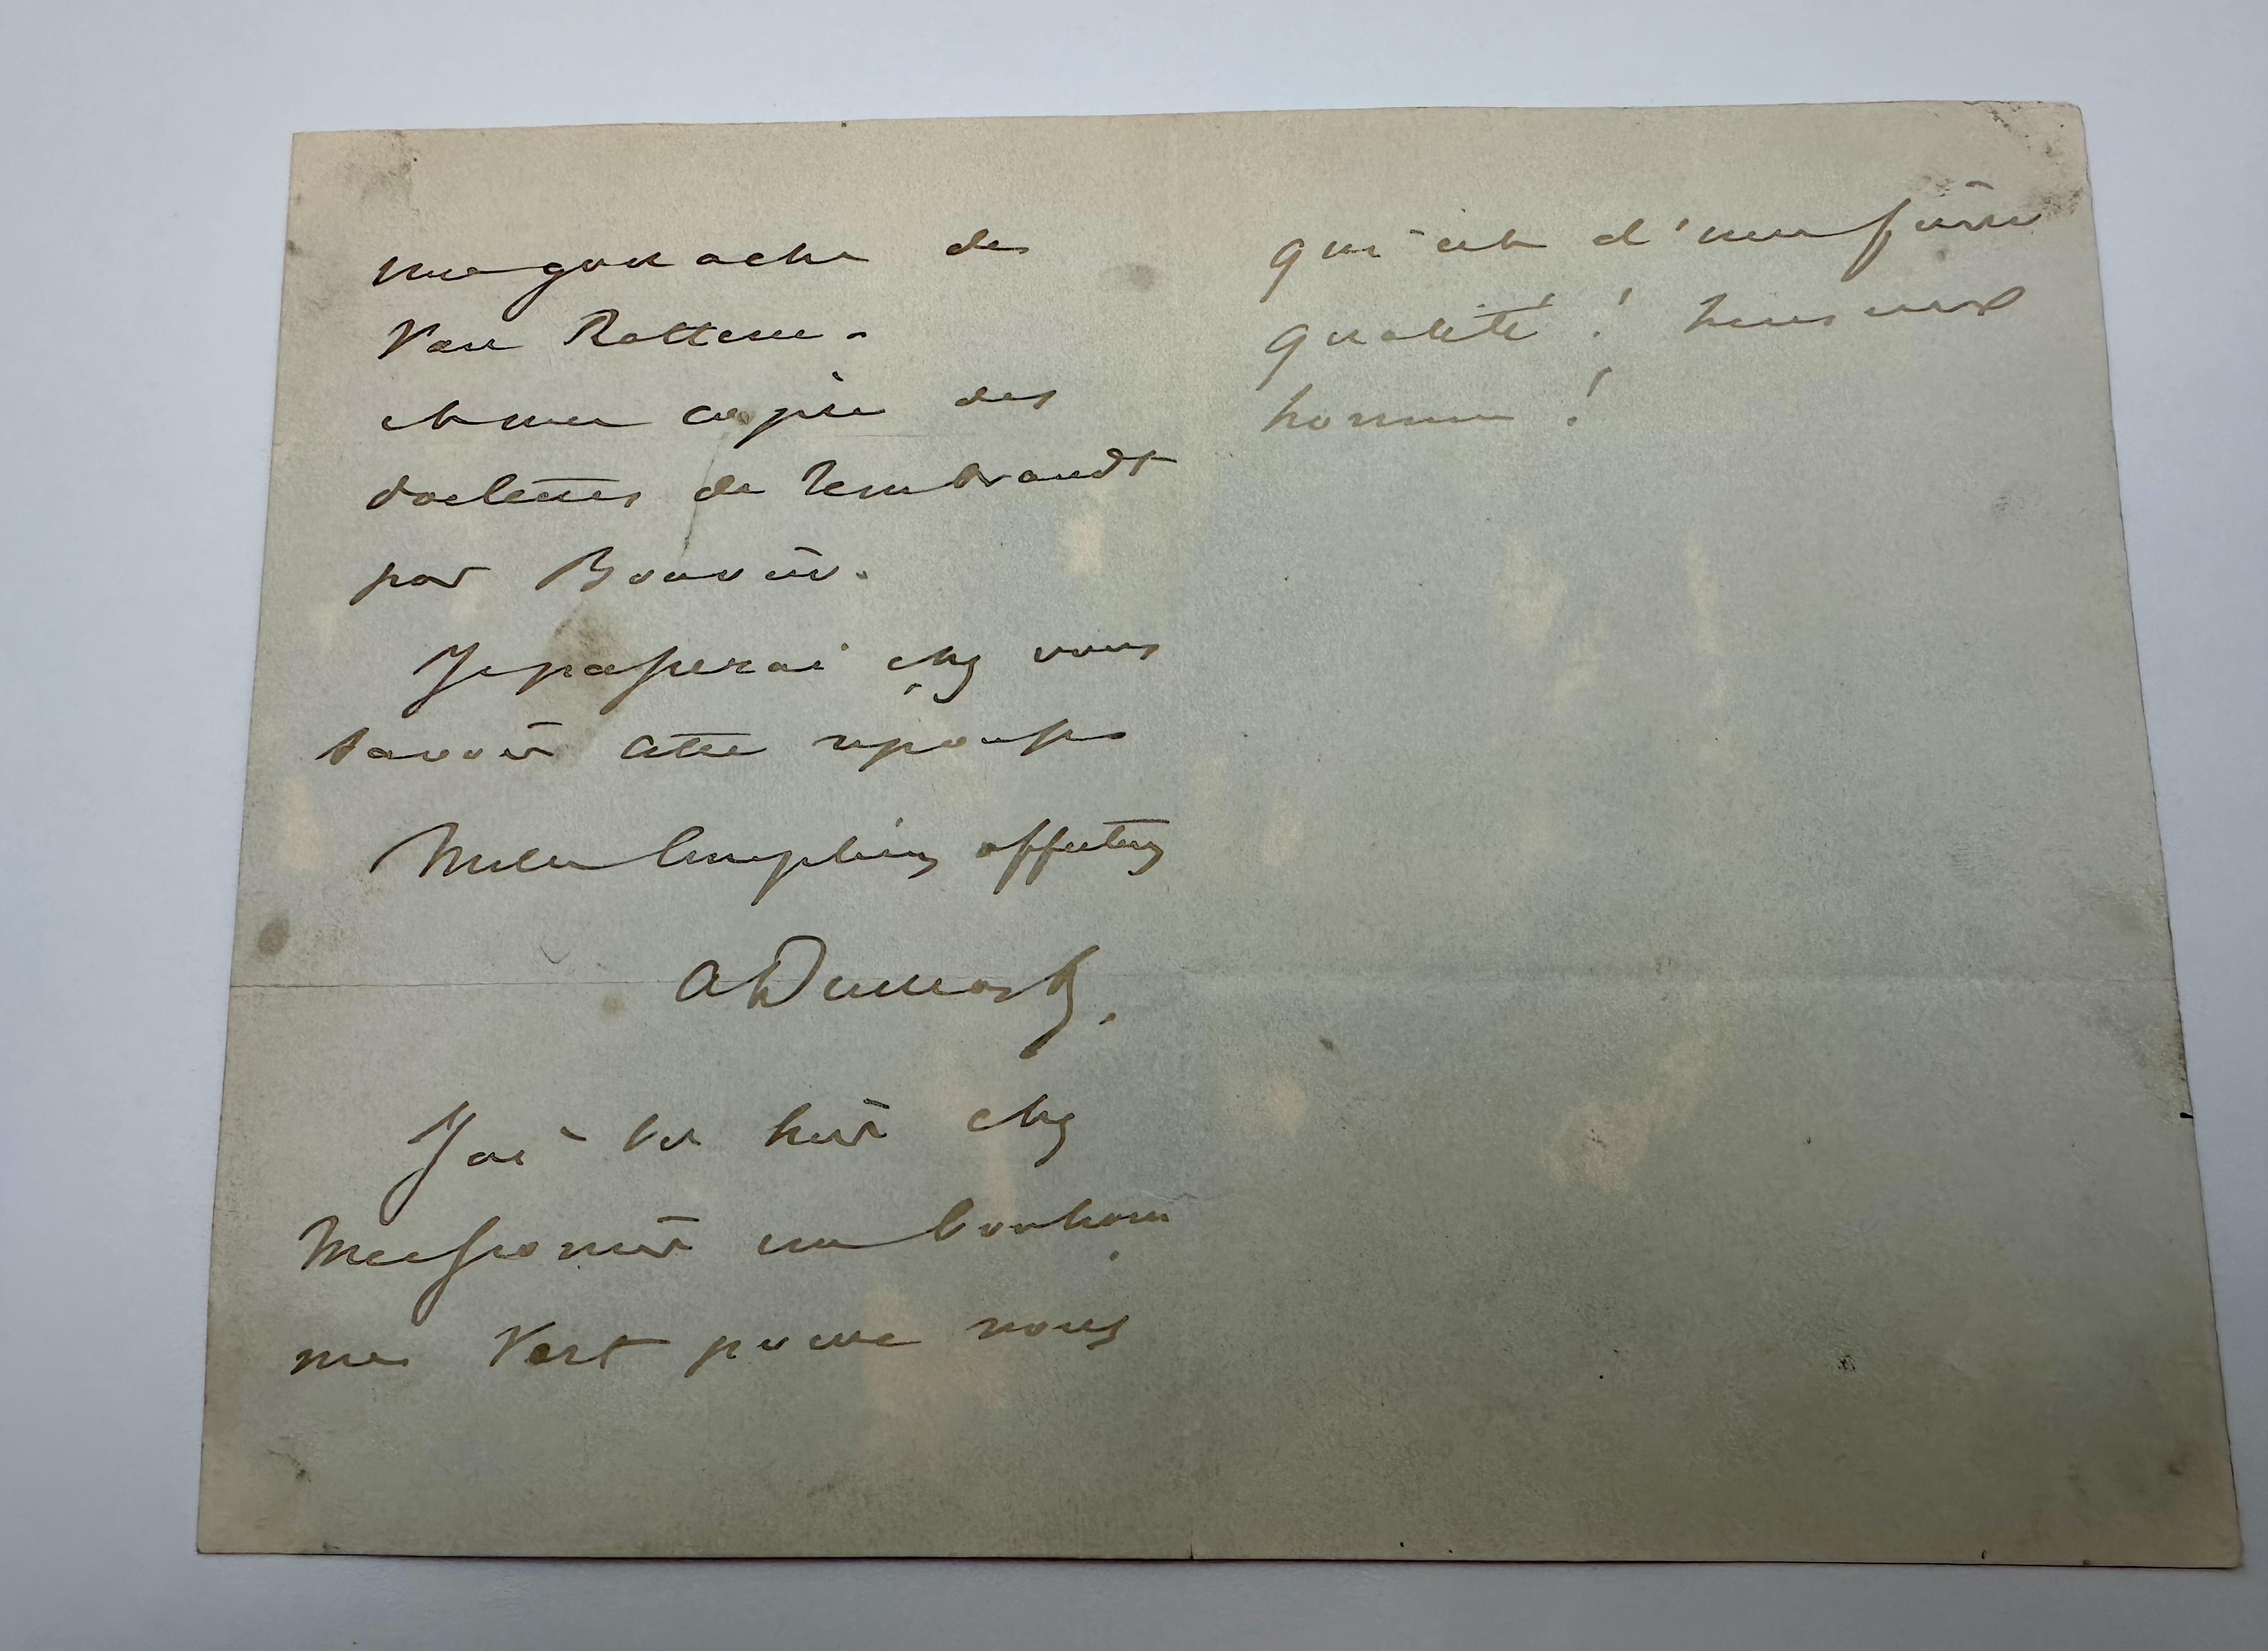 une gouache de
Van
et une copie des
de Rembrandt
par
Je passerai chez vous
savoir cette reponse
Mille Compliments affectueux
J'ai vu hier chez
Meissonier un bonhom
me Vert pomme
qui est d'une fiere
qualité ! heureux
homme !